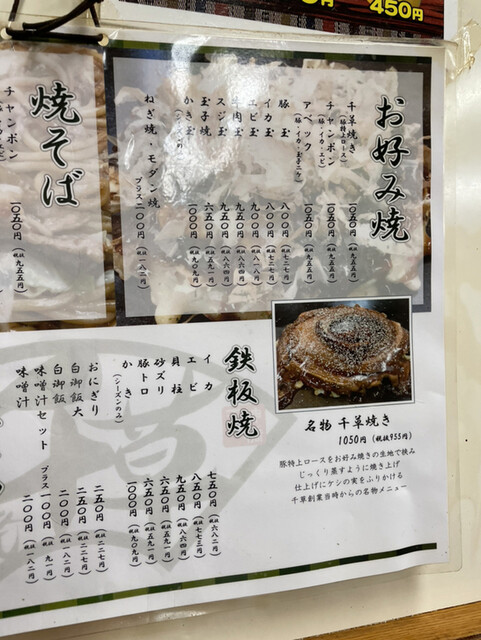 450円
お好み焼
千草焼き (豚特上ロース) 一〇五〇円 (税抜九五五円)
チャンポン (豚・イカ・エビ) 一〇五〇円 (税抜九五五円)
アベック (豚・イカ・玉子二ケ) 一〇五〇円 (税抜九五五円)
豚玉 八〇〇円 (税抜七二七円)
イカ玉 八〇〇円 (税抜七二七円)
エビ玉 九〇〇円 (税抜八一八円)
牛肉玉 九五〇円 (税抜八六四円)
スジ玉 九五〇円 (税抜八六四円)
玉子焼 六五〇円 (税抜五九一円)
かき玉 (シーズンのみ) 一〇〇〇円 (税抜九〇九円)
ねぎ焼・モダン焼 プラス二〇〇円 (税抜一八二円)
焼そば
チャンポン 一〇五〇円 (税抜九五五円)
名物 千草焼き
1050円 (税抜955円)
豚特上ロースをお好み焼きの生地で挟み
じっくり蒸すように焼き上げ
仕上げにケシの実をふりかける
千草創業当時からの名物メニュー
鉄板焼
イカ 七五〇円 (税抜六八二円)
エビ 八五〇円 (税抜七七三円)
貝柱 九五〇円 (税抜八六四円)
砂ズリ 六五〇円 (税抜五九一円)
豚トロ 六五〇円 (税抜五九一円)
かき (シーズンのみ) 一〇〇〇円 (税抜九〇九円)
おにぎり 二五〇円 (税抜二二七円)
白御飯大 二五〇円 (税抜二二七円)
白御飯 二〇〇円 (税抜一八二円)
味噌汁セット プラス一〇〇円 (税抜九一円)
味噌汁 二〇〇円 (税抜一八二円)